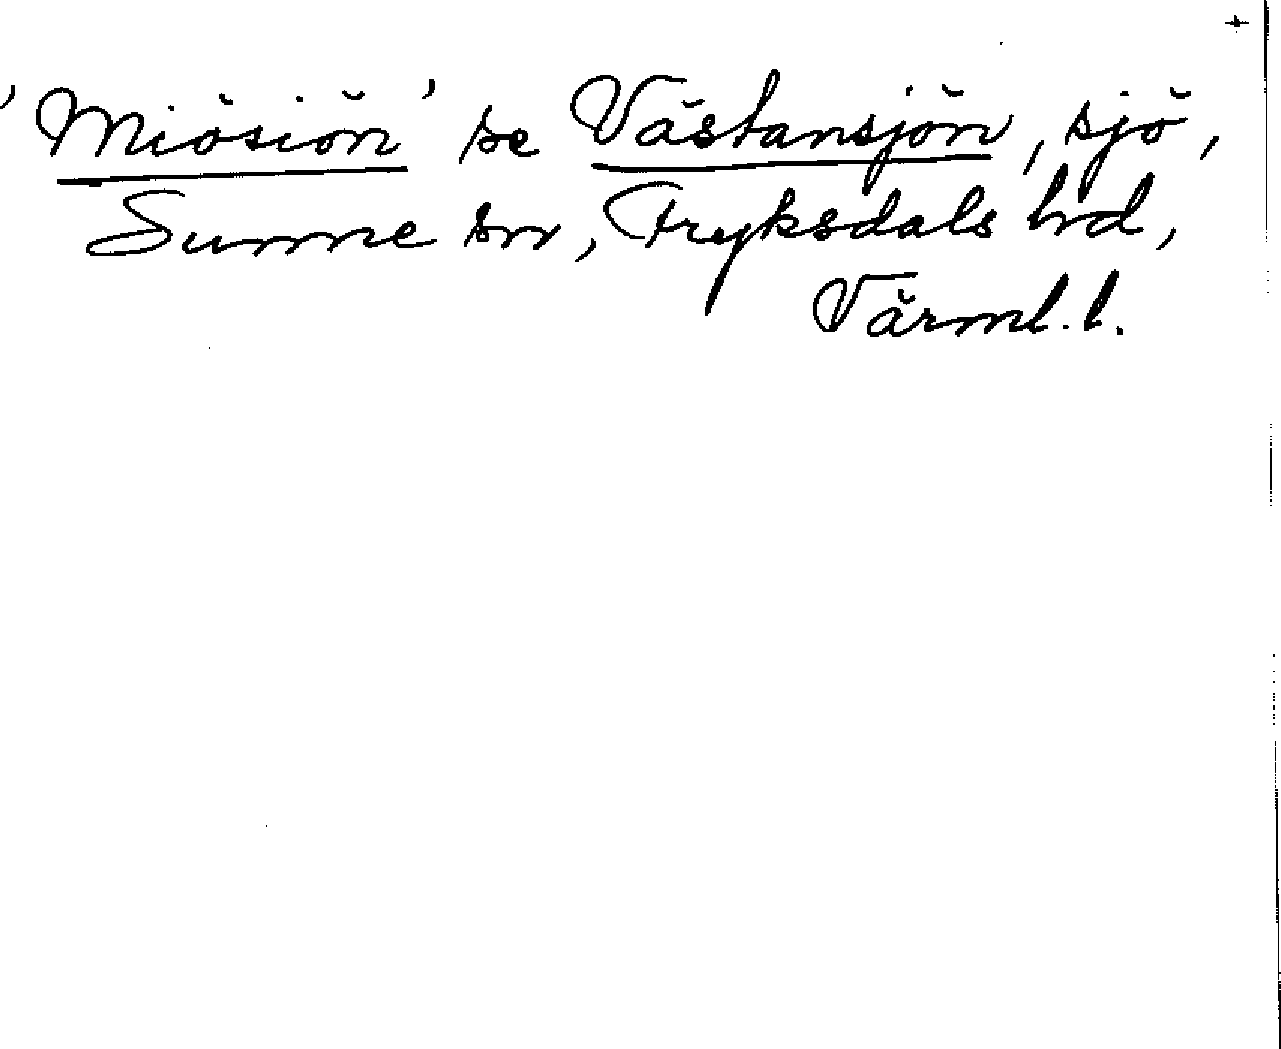 'Miösiön' se Västansjön, sjö,
Sunne sn, Fryksdals hd,
Värml. l.